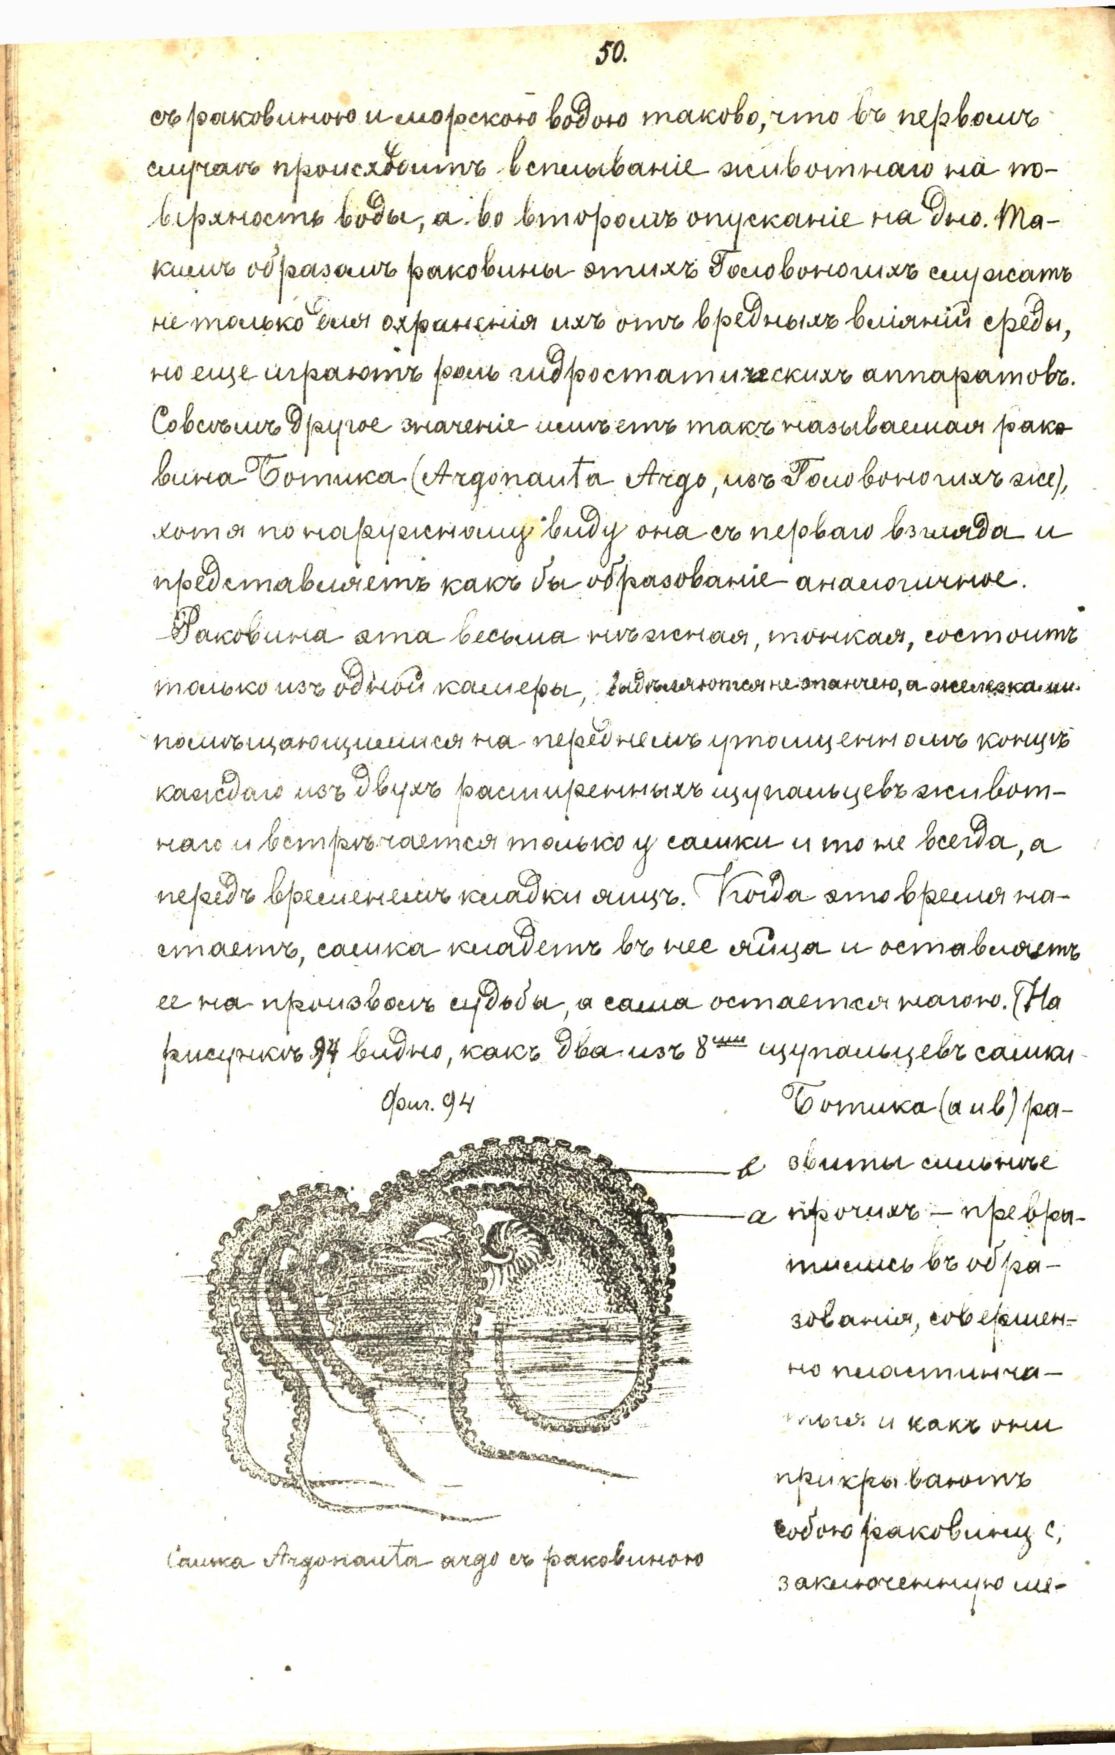 50.
съ раковиною и морскою водою таково, что въ первомъ
случаѣ происходитъ всплываніе животнаго на по-
верхность воды, а во второмъ опусканіе на дно. Та-
кимъ образомъ раковины этихъ Головоногихъ служатъ
не только для охраненія ихъ отъ вредныхъ вліяній среды,
но еще играютъ роль гидростатическихъ аппаратовъ.
Совсѣмъ другое значеніе имѣетъ такъ называемая рако
вина Ботика (Argonauta Argo, изъ Головоногихъ же),
хотя по наружному виду она съ перваго взгляда и
представляетъ какъ бы образованіе аналогичное.
Раковина эта весьма нѣжная, тонкая, состоитъ
только изъ одной камеры, выдѣляются не мантіею, а железками
помѣщающимися на переднемъ утолщенномъ концѣ
каждаго изъ двухъ расширенныхъ щупальцевъ живот-
наго и встрѣчается только у самки и то не всегда, а
передъ временемъ кладки яицъ. Когда это время на-
стаетъ, самка кладетъ въ нее яйца и оставляетъ
ее на произволъ судьбы, а сама остается нагою. (На
рисункѣ 94 видно, какъ два изъ 8ми щупальцевъ самки
Фиг. 94
Ботика (а и в) ра-
звиты сильнѣе
прочихъ — превра-
тились въ обра-
зованія, совершен-
но пластинча-
тыя и какъ они
прикрываютъ
собою раковину с,
заключенную ме-
в
а
Самка Argonauta argo съ раковиною